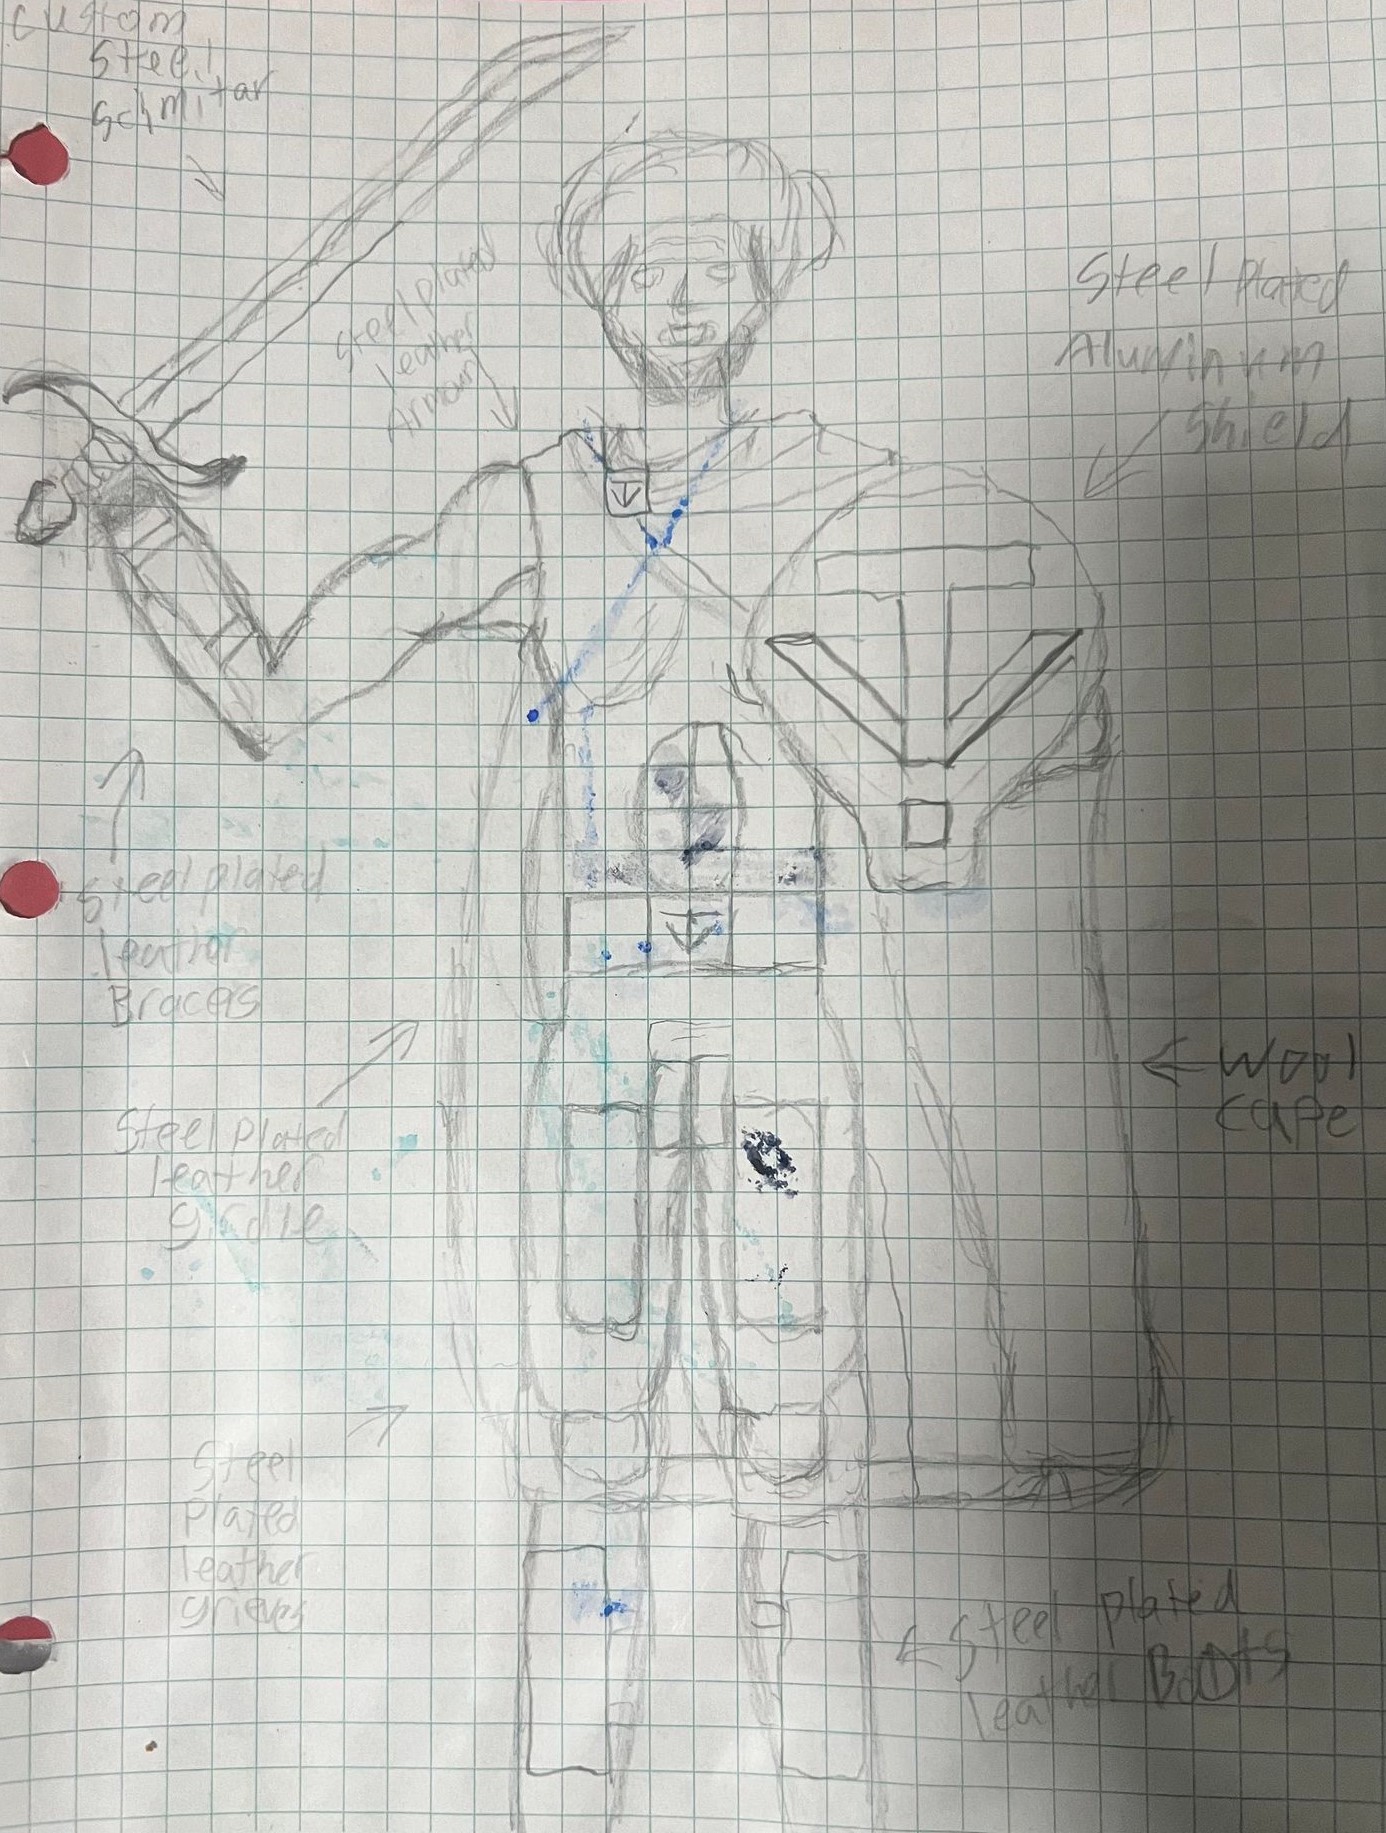 custom
Steel
Schmitar
Steel plated
leather
Armour
Steel Plated
Aluminum
Shield
Steel plated
leather
Bracers
Steel Plated
leather
girdle
← Wool
cape
Steel
Plated
leather
grieves
← Steel plated
leather Boots